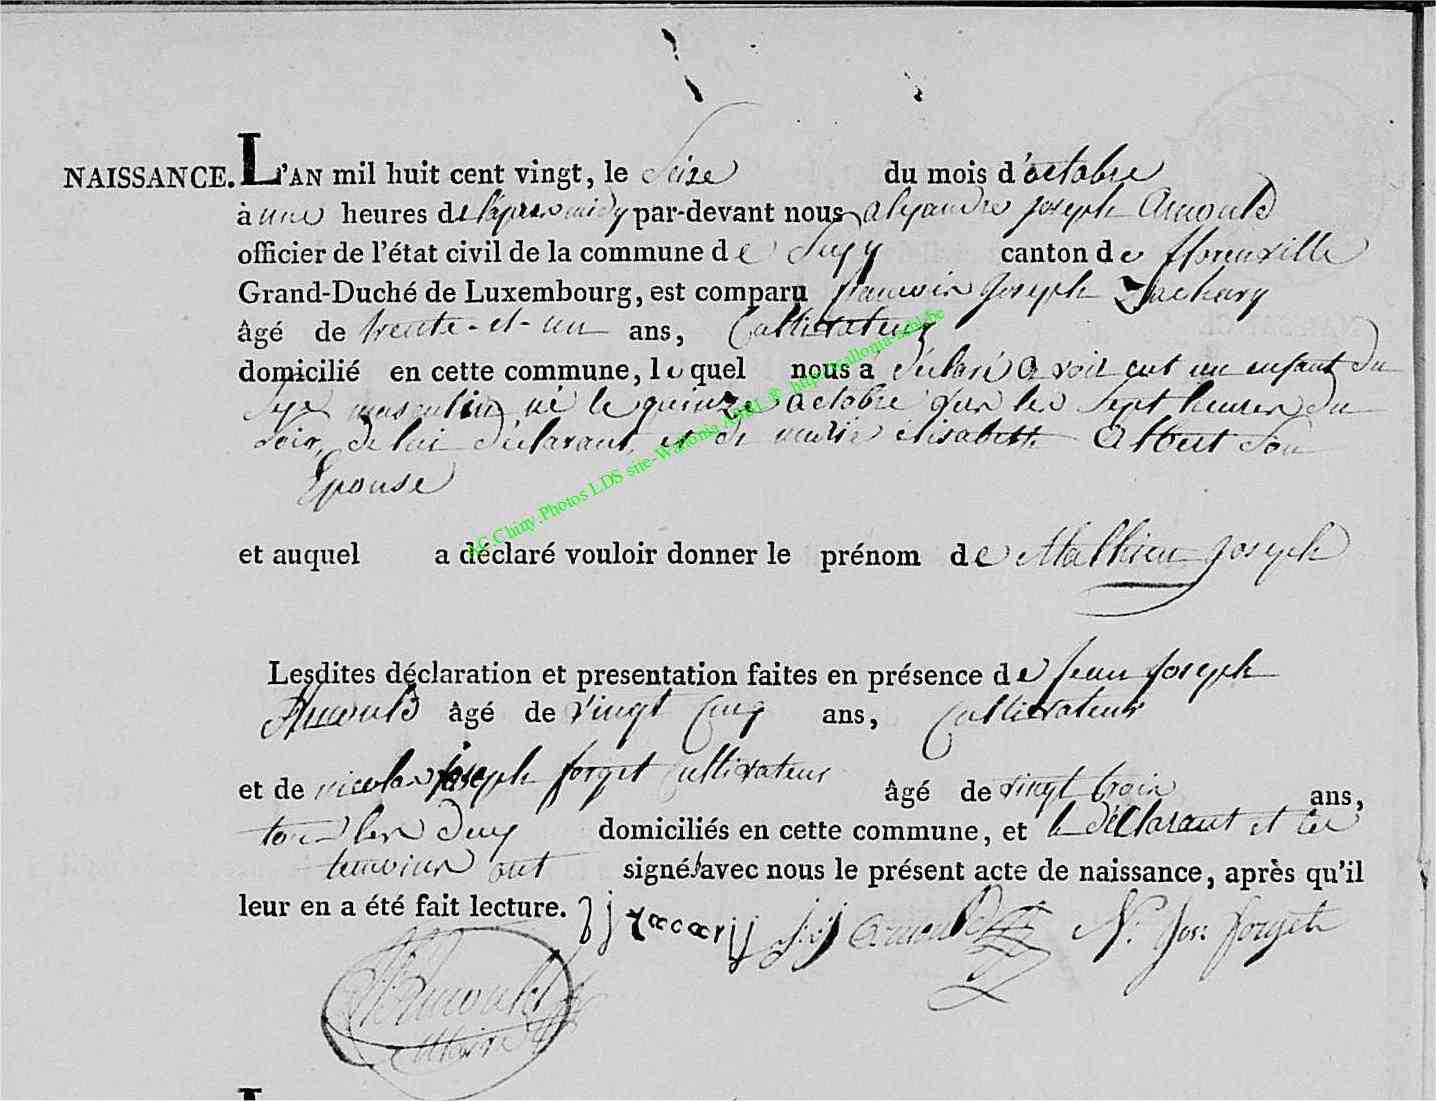 NAISSANCE. L'AN mil huit cent vingt, le Seize du mois d'octobre
à une heures de l'apres midy par-devant nous alexandre joseph Arnould
officier de l'état civil de la commune de Suxy canton de florenville
Grand-Duché de Luxembourg, est comparu francois joseph Zachary
âgé de trente-et-un ans, Cultivateur
domicilié en cette commune, lequel nous a déclaré avoir eut un enfant du
Sexe masculin né le quinze octobre Sur les Sept heures du
Soir, de lui déclarant et de marie elisabeth Albert Son
Epouse
et auquel a déclaré vouloir donner le prénom de Mathieu joseph
Lesdites déclaration et presentation faites en présence de Jean joseph
Arnould âgé de vingt Cinq ans, Cultivateur
et de nicolas joseph forget cultivateur âgé de vingt trois ans,
tous les deux domiciliés en cette commune, et le déclarant et les
temoins ont signés avec nous le présent acte de naissance, après qu'il
leur en a été fait lecture. zacarij j:j arnould N. Jos: forget
Arnould
Maire
AC.Chiny.Photos LDS site-Wallonia ASBL @ http://wallonia-asbl.be